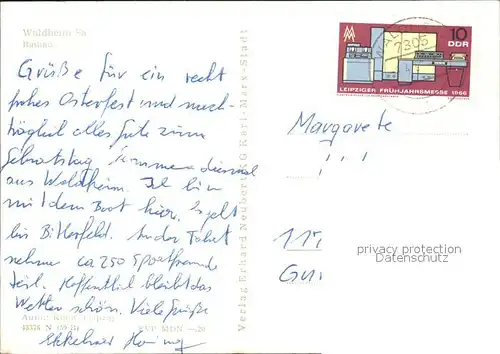 Waldheim Sa
Rathaus
Grüße für ein recht
frohes Osterfest und nach-
träglich alles Gute zum
Geburtstag kommen diesmal
aus Waldheim. Ich bin
mit dem Boot hier. Es geht
bis Bitterfeld. An der Fahrt
nehmen ca 250 Sportfreunde
teil. Hoffentlich bleibt das
Wetter schön. Viele Grüße
Ekkehard
Verlag Erhard Neubert KG Karl-Marx-Stadt
EVP MDN -.20
10
DDR
MM
LEIPZIGER FRÜHJAHRSMESSE 1966
7305
Margarete
privacy protection
Datenschutz